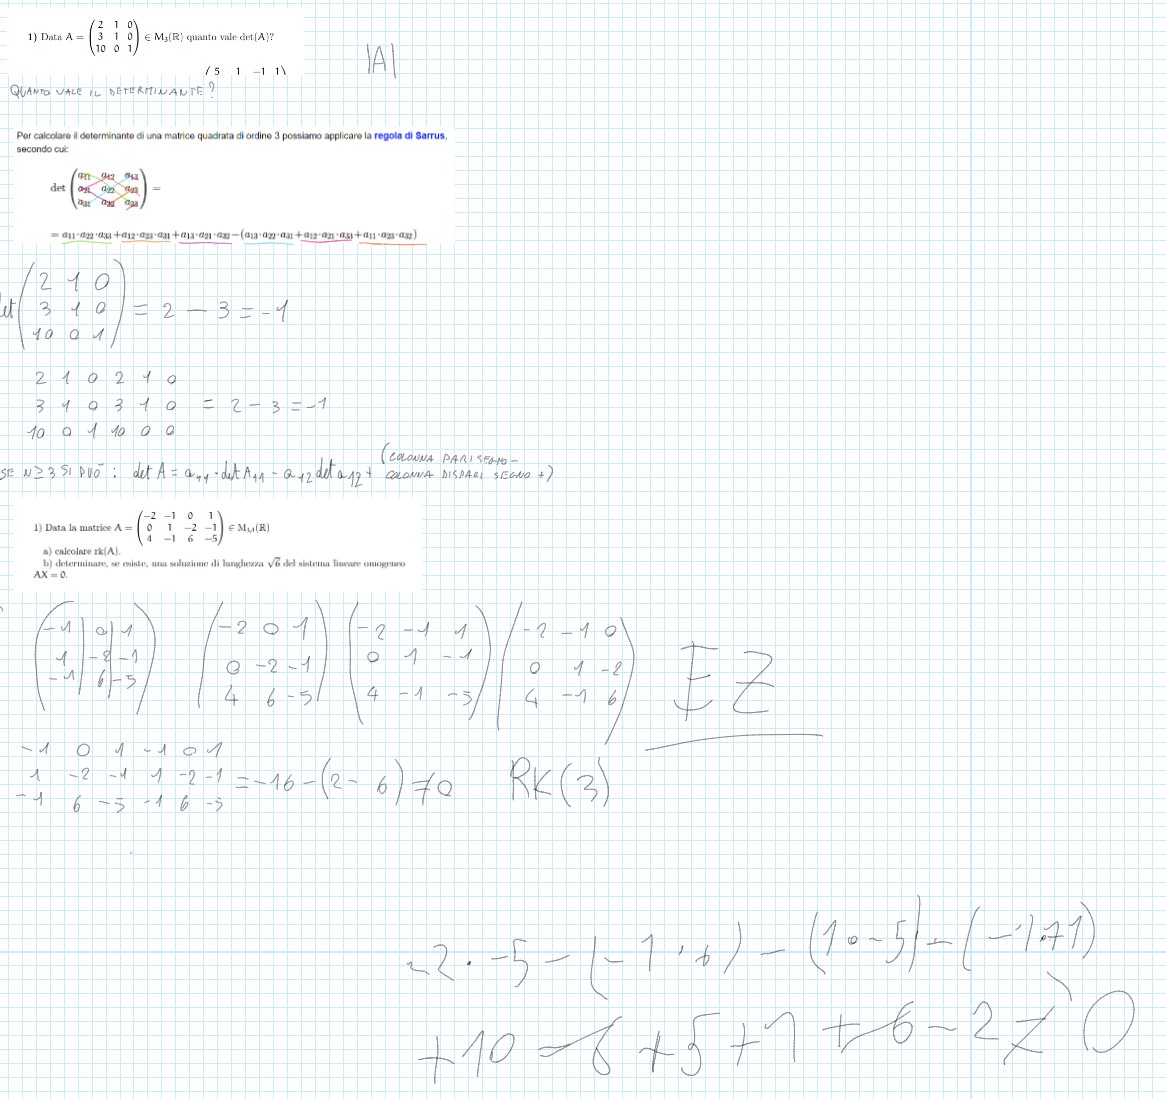 1) Data A = ( 2 1 0
3 1 0
10 0 1 ) ∈ M₃(ℝ) quanto vale det(A)?
|A|
( 5 1 −1 1 )
QUANTO VALE IL DETERMINANTE?
Per calcolare il determinante di una matrice quadrata di ordine 3 possiamo applicare la regola di Sarrus,
secondo cui:
det ( a11 a12 a13
a21 a22 a23
a31 a32 a33 ) =
= a11·a22·a33+a12·a23·a31+a13·a21·a32−(a13·a22·a31+a12·a21·a33+a11·a23·a32)
( 2 1 0
3 1 0
10 0 1 ) = 2 − 3 = −1
2 1 0 2 1 0
3 1 0 3 1 0 = 2 − 3 = −1
10 0 1 10 0 0
SE N≥3 SI PUÒ: det A = a11 · det A11 − a12 det a12 + (COLONNA PARI SEGNO −
COLONNA DISPARI SEGNO +)
1) Data la matrice A = ( −2 −1 0 1
0 1 −2 −1
4 −1 6 −5 ) ∈ M3,4(ℝ)
a) calcolare rk(A).
b) determinare, se esiste, una soluzione di lunghezza √6 del sistema lineare omogeneo
AX = 0.
( −1 | 0 | 1 ) ( −2 0 1 ) ( −2 −1 1 ) ( −2 −1 0 )
( 1 | −2 −1 ) ( 0 −2 −1 ) ( 0 1 −1 ) ( 0 1 −2 )
( −1 | 6 | −5 ) ( 4 6 −5 ) ( 4 −1 −5 ) ( 4 −1 6 )
EZ
−1 0 1 −1 0 1
1 −2 −1 1 −2 −1 = −16 − (2 − 6) ≠ 0 RK(3)
−1 6 −5 −1 6 −5
−2 · −5 − (−1 · 6) − (1 · −5) −
+10 − 6 + 5 + 1 + 6 − 2 ≠ 0